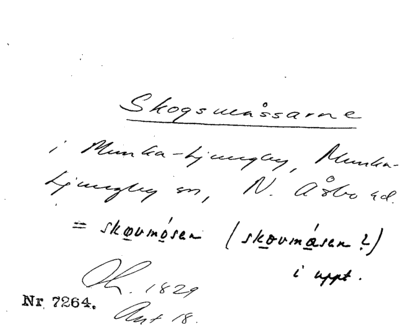 Skogsmåssarne
i Munka-Ljungby, Munka-
Ljungby sn, N. Åsbo hd.
= skovmósen (skovmåsen?)
i uppt.
1829
Nr 7264. Ant 18.